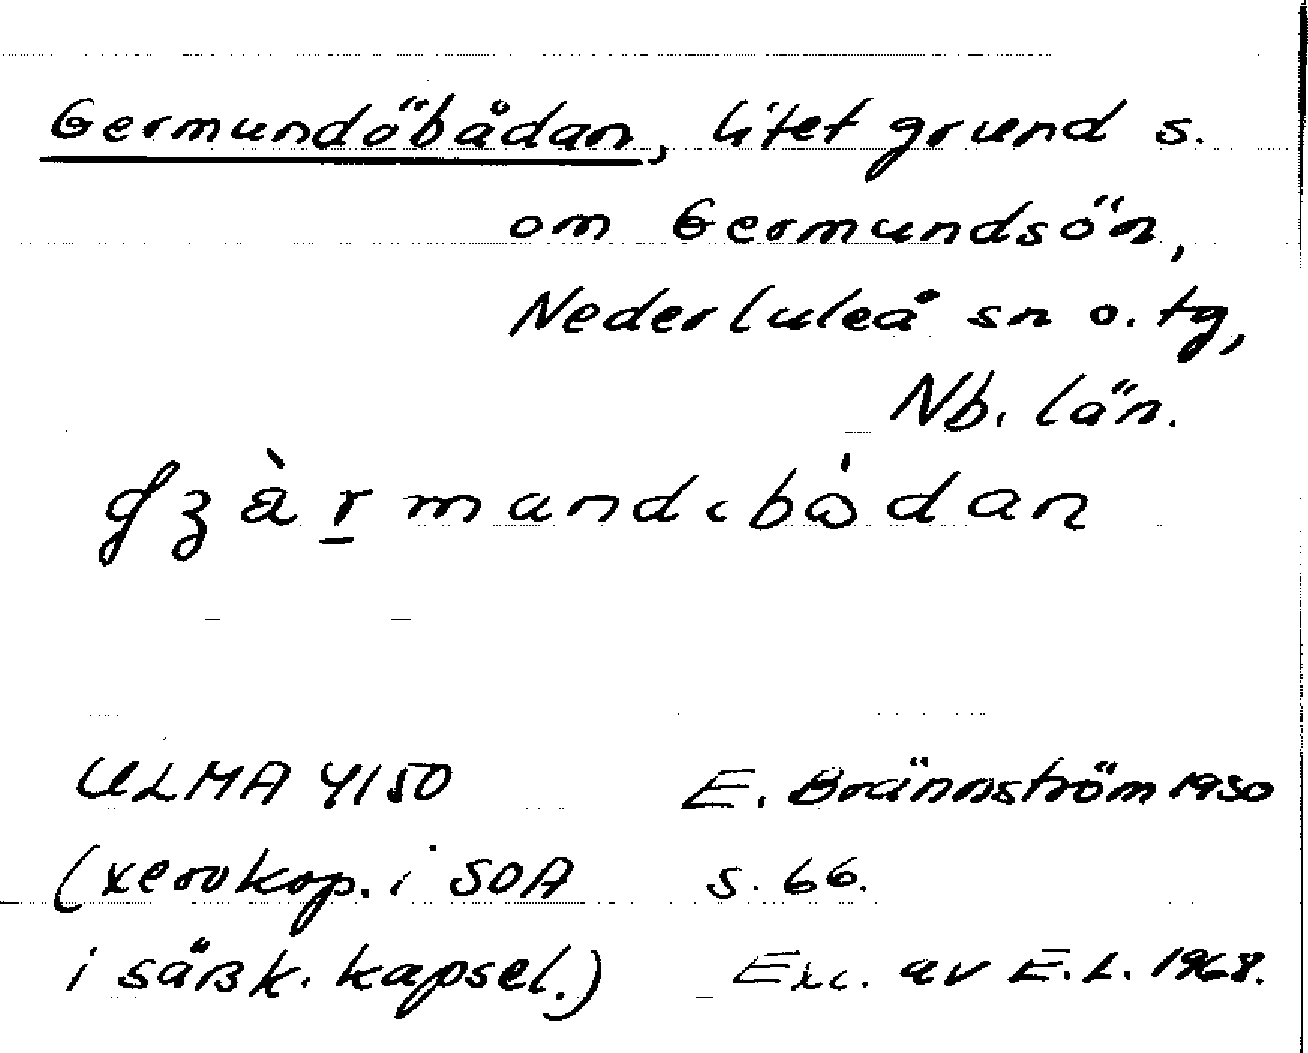 Germundöbådan, litet grund s.
om Germundsön,
Nederluleå sn o. tg,
Nb. län.
ULMA 4150 E. Brännström 1930
(xerokop. i SOA s. 66.
i särsk. kapsel.) Exc. av E.L. 1968.